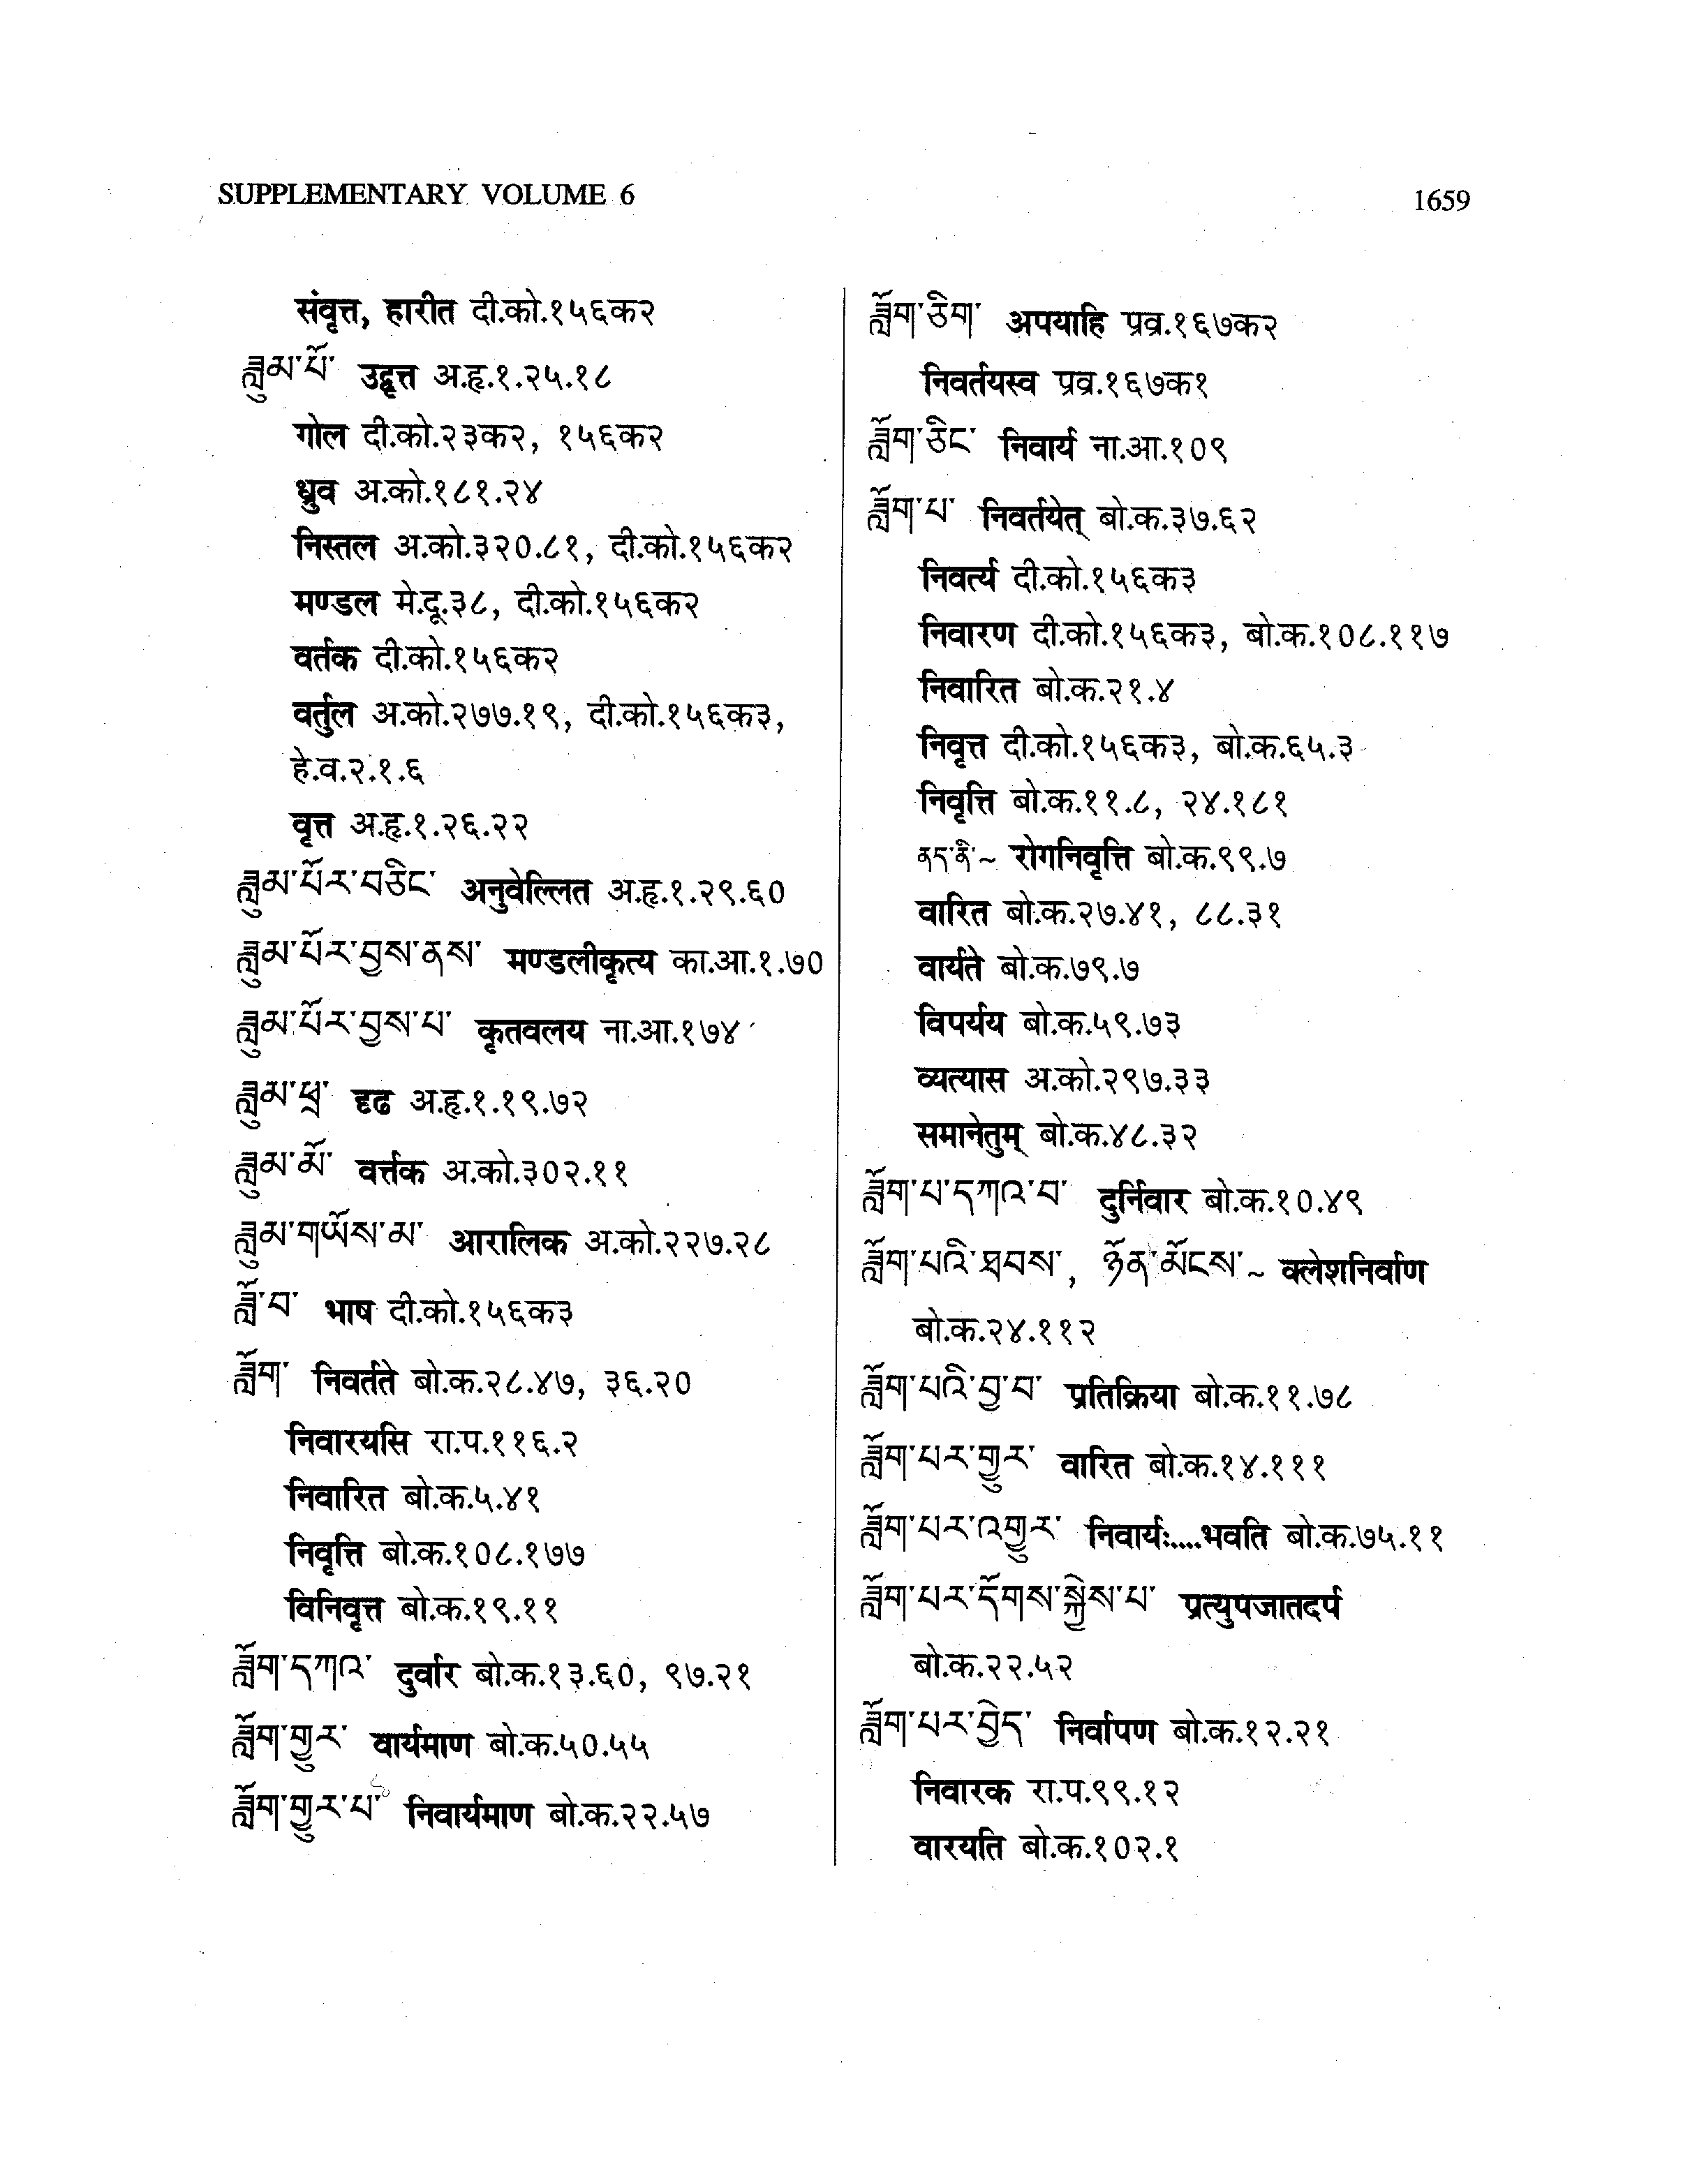 SUPPLEMENTARY VOLUME 6
1659
संवृत्त, हारीत दी.को.१५६क२
ཟླུམ་པོ་ उद्वृत्त अ.हृ.१.२५.१८
गोल दी.को.२३क२, १५६क२
ध्रुव अ.को.१८१.२४
निस्तल अ.को.३२०.८१, दी.को.१५६क२
मण्डल मे.दू.३८, दी.को.१५६क२
वर्तक दी.को.१५६क२
वर्तुल अ.को.२७७.१९, दी.को.१५६क३,
हे.व.२.१.६
वृत्त अ.हृ.१.२६.२२
ཟླུམ་པོར་བཅིང་ अनुवेल्लित अ.हृ.१.२९.६०
ཟླུམ་པོར་བྱས་ནས་ मण्डलीकृत्य का.आ.१.७०
ཟླུམ་པོར་བྱས་པ་ कृतवलय ना.आ.१७४
ཟླུམ་ཕྲ་ दृढ अ.हृ.१.१९.७२
ཟླུམ་མོ་ वर्त्तक अ.को.३०२.११
ཟླུམ་གཡོས་མ་ आरालिक अ.को.२२७.२८
ཟློ་བ་ भाष दी.को.१५६क३
ཟློག་ निवर्तते बो.क.२८.४७, ३६.२०
निवारयसि रा.प.११६.२
निवारित बो.क.५.४१
निवृत्ति बो.क.१०८.१७७
विनिवृत्त बो.क.१९.११
ཟློག་དཀའ་ दुर्वार बो.क.१३.६०, ९७.२१
ཟློག་གྱུར་ वार्यमाण बो.क.५०.५५
ཟློག་གྱུར་པ་ निवार्यमाण बो.क.२२.५७
ཟློག་ཅིག་ अपयाहि प्रव्र.१६७क२
निवर्तयस्व प्रव्र.१६७क१
ཟློག་ཅིང་ निवार्य ना.आ.१०९
ཟློག་པ་ निवर्तयेत् बो.क.३७.६२
निवर्त्य दी.को.१५६क३
निवारण दी.को.१५६क३, बो.क.१०८.११७
निवारित बो.क.२१.४
निवृत्त दी.को.१५६क३, बो.क.६५.३
निवृत्ति बो.क.११.८, २४.१८१
ནད་ནི་~ रोगनिवृत्ति बो.क.९९.७
वारित बो.क.२७.४१, ८८.३१
वार्यते बो.क.७९.७
विपर्यय बो.क.५९.७३
व्यत्यास अ.को.२९७.३३
समानेतुम् बो.क.४८.३२
ཟློག་པ་དཀའ་བ་ दुर्निवार बो.क.१०.४९
ཟློག་པའི་ཐབས་, ཉོན་མོངས་~ क्लेशनिर्वाण
बो.क.२४.११२
ཟློག་པའི་བྱ་བ་ प्रतिक्रिया बो.क.११.७८
ཟློག་པར་གྱུར་ वारित बो.क.१४.१११
ཟློག་པར་འགྱུར་ निवार्यः....भवति बो.क.७५.११
ཟློག་པར་དོགས་སྐྱེས་པ་ प्रत्युपजातदर्प
बो.क.२२.५२
ཟློག་པར་བྱེད་ निर्वापण बो.क.१२.२१
निवारक रा.प.९९.१२
वारयति बो.क.१०२.१